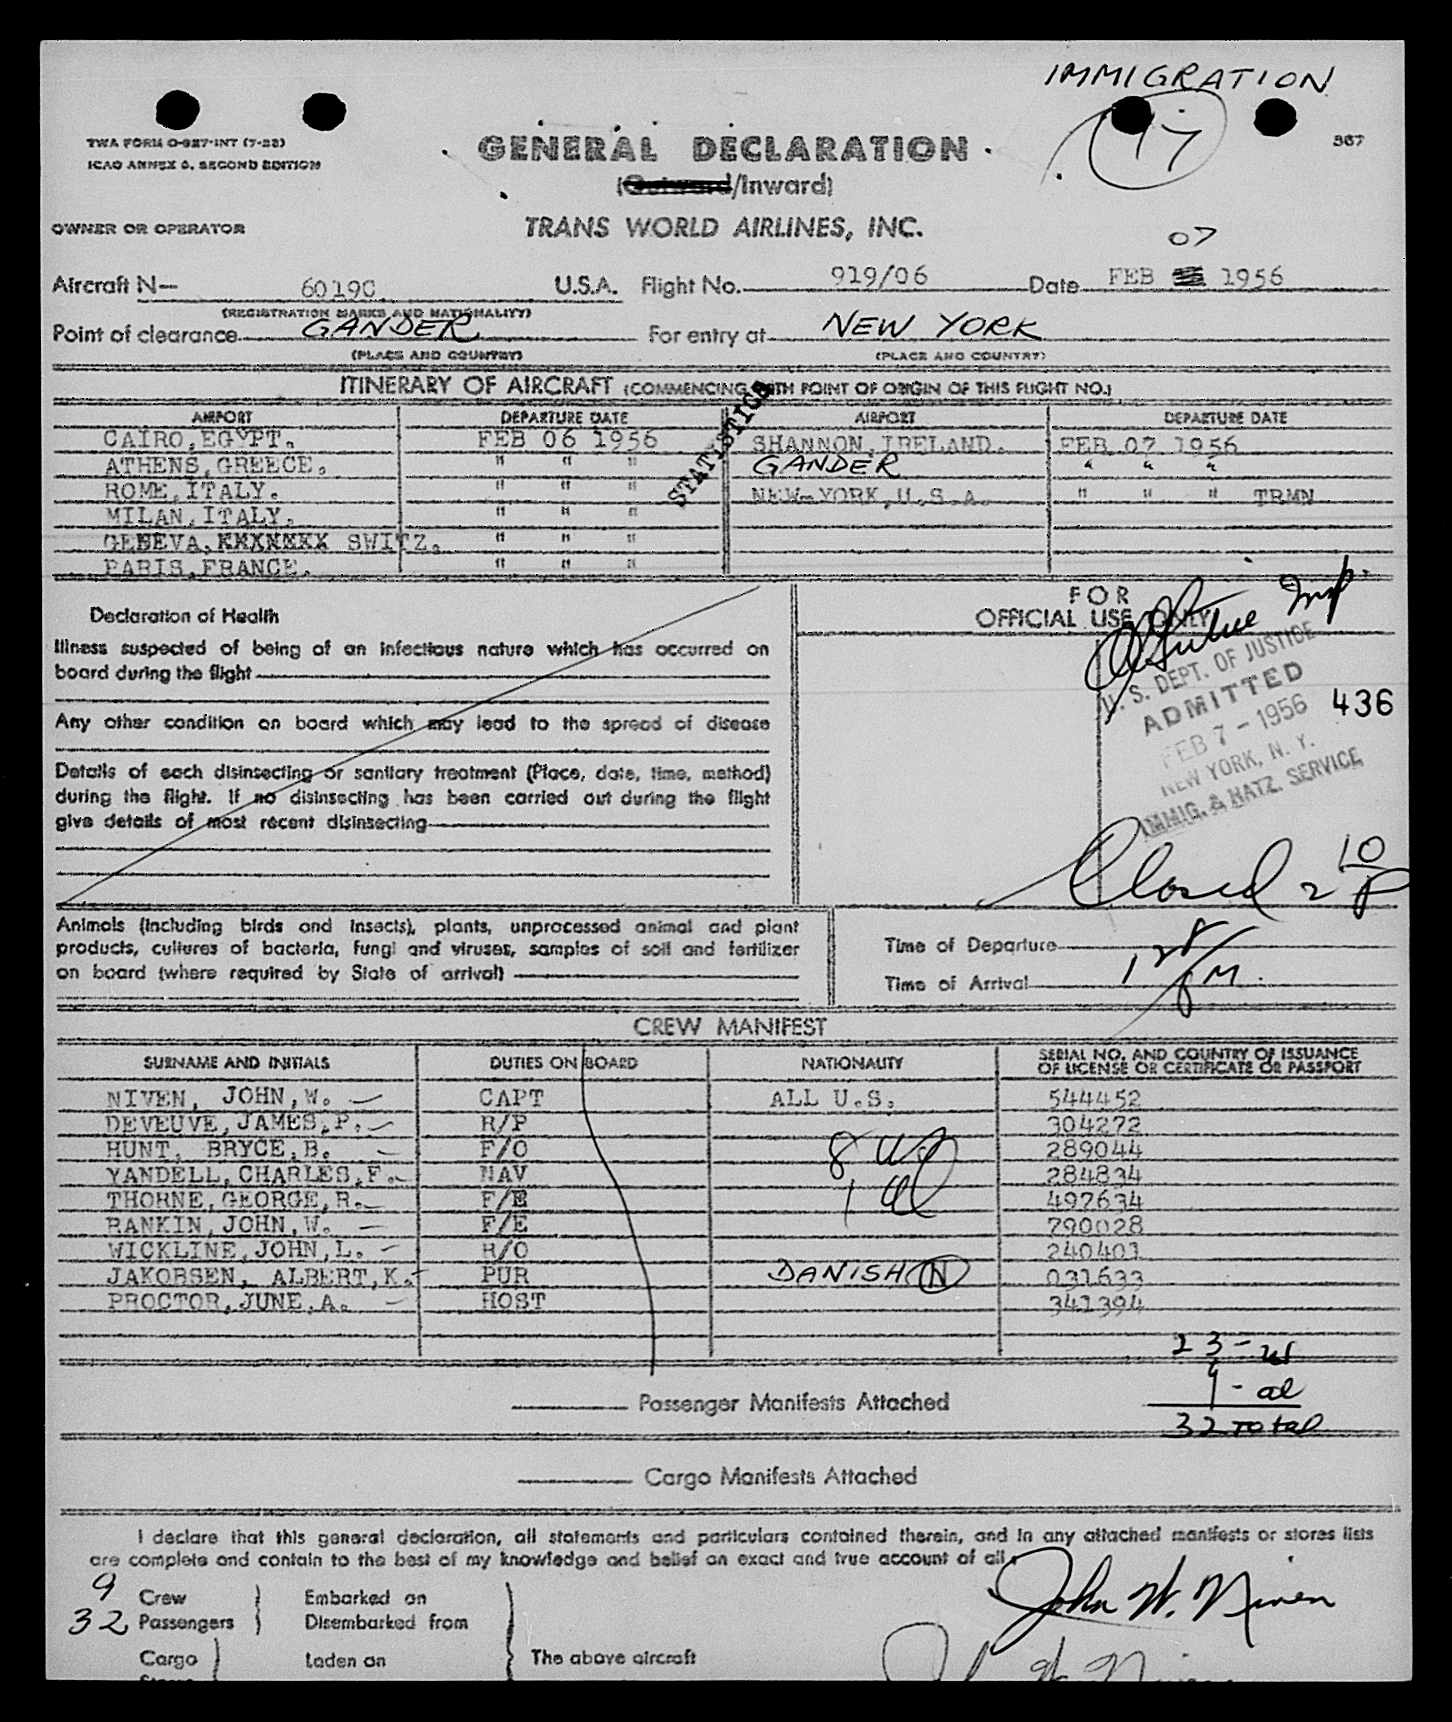 IMMIGRATION
17
TWA FORM O-927-INT (7-53)
ICAO ANNEX 9, SECOND EDITION
367
GENERAL DECLARATION
(Outward/Inward)
OWNER OR OPERATOR TRANS WORLD AIRLINES, INC.
07
Aircraft N— 6019C U.S.A. Flight No. 919/06 Date FEB 1956
(REGISTRATION MARKS AND NATIONALITY)
Point of clearance GANDER For entry at NEW YORK
(PLACE AND COUNTRY) (PLACE AND COUNTRY)
ITINERARY OF AIRCRAFT (COMMENCING WITH POINT OF ORIGIN OF THIS FLIGHT NO.)
STATISTICS
AIRPORT DEPARTURE DATE AIRPORT DEPARTURE DATE
CAIRO,EGYPT. FEB 06 1956 SHANNON,IRELAND. FEB 07 1956
ATHENS,GREECE. " " " GANDER " " "
ROME,ITALY. " " " NEW YORK,U.S.A. " " " TRMN
MILAN,ITALY. " " "
GENEVA, SWITZ. " " "
PARIS,FRANCE. " " "
Declaration of Health
Illness suspected of being of an infectious nature which has occurred on
board during the flight
Any other condition on board which may lead to the spread of disease
Details of each disinsecting or sanitary treatment (Place, date, time, method)
during the flight. If no disinsecting has been carried out during the flight
give details of most recent disinsecting
FOR
OFFICIAL USE ONLY
Insp.
U. S. DEPT. OF JUSTICE
ADMITTED
FEB 7 - 1956
NEW YORK, N. Y.
IMMIG. & NATZ. SERVICE
436
Closed 2 10 P
Animals (including birds and insects), plants, unprocessed animal and plant
products, cultures of bacteria, fungi and viruses, samples of soil and fertilizer
on board (where required by State of arrival)
Time of Departure
Time of Arrival 1 28 PM.
CREW MANIFEST
SURNAME AND INITIALS DUTIES ON BOARD NATIONALITY SERIAL NO. AND COUNTRY OF ISSUANCE
OF LICENSE OR CERTIFICATE OR PASSPORT
NIVEN, JOHN,W. CAPT ALL U.S. 544452
DEVEUVE,JAMES,P. R/P 304272
HUNT, BRYCE,B. F/O 289044
YANDELL,CHARLES,F. NAV 284834
THORNE,GEORGE,R. F/E 497634
RANKIN,JOHN,W. F/E 790028
WICKLINE,JOHN,L. R/O 240401
JAKOBSEN, ALBERT,K. PUR DANISH N 031633
PROCTOR,JUNE,A. HOST 341394
8 US
1 al
23 - us
9 - al
32 total
Passenger Manifests Attached
Cargo Manifests Attached
I declare that this general declaration, all statements and particulars contained therein, and in any attached manifests or stores lists
are complete and contain to the best of my knowledge and belief an exact and true account of all
9 Crew Embarked on
32 Passengers Disembarked from
John W. Niven
Cargo Laden on The above aircraft
Stores
John W. Niven